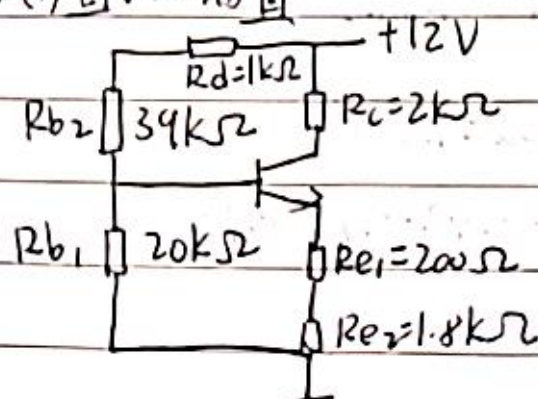 +12V
Rd=1kΩ
Rb2 39kΩ
Rc=2kΩ
Rb1 20kΩ
Re1=200Ω
Re2=1.8kΩ